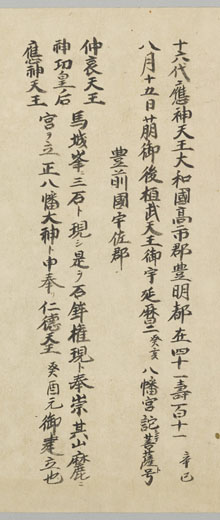 十六代應神天王大和國高市郡豊明都在四十一壽百十一 辛巳
八月十五日崩御後桓武天王御宇延暦二癸亥八幡宮詫菩薩号
豊前國宇佐郡
仲哀天王
神功皇后
應神天王
馬城峯三石ト現シ是ヲ石躰権現ト奉崇其山麓ニ
宮ヲ立正八幡大神ト申奉仁徳天王癸酉元御建立也